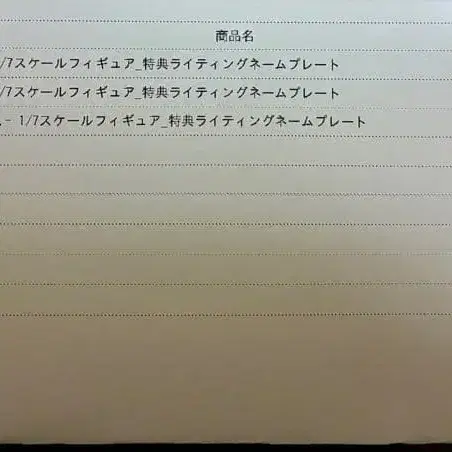 商品名
/7スケールフィギュア_特典ライティングネームプレート
/7スケールフィギュア_特典ライティングネームプレート
- 1/7スケールフィギュア_特典ライティングネームプレート